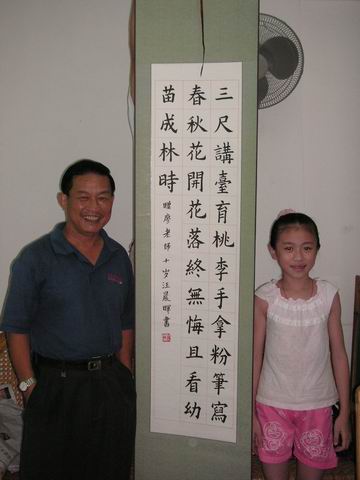 三尺講臺育桃李手拿粉筆寫
春秋花開花落終無悔且看幼
苗成林時
贈廖老師 十岁汪晨暉書